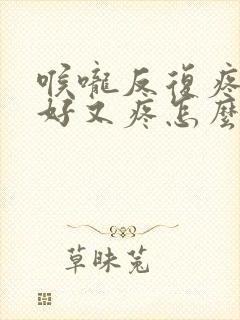 喉嚨反復疼
好又疼怎麼
草昧菟